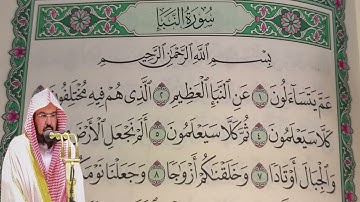 سُورَةُ النَّبَإِ
بِسْمِ اللَّهِ الرَّحْمَٰنِ الرَّحِيمِ
عَمَّ يَتَسَاءَلُونَ ١ عَنِ النَّبَإِ الْعَظِيمِ ٢ الَّذِي هُمْ فِيهِ مُخْتَلِفُونَ
كَلَّا سَيَعْلَمُونَ ٤ ثُمَّ كَلَّا سَيَعْلَمُونَ ٥ أَلَمْ نَجْعَلِ الْأَرْضَ
وَالْجِبَالَ أَوْتَادًا ٧ وَخَلَقْنَاكُمْ أَزْوَاجًا ٨ وَجَعَلْنَا نَوْمَكُمْ